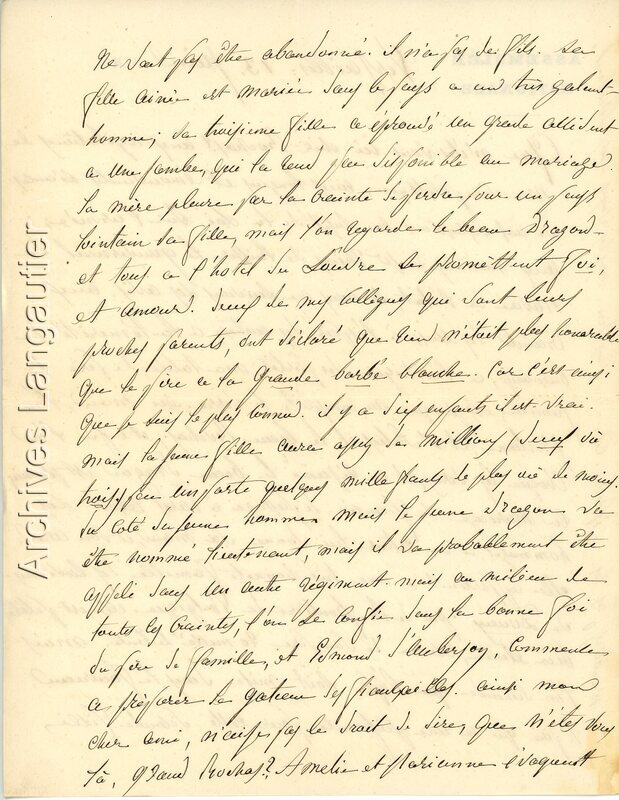 ne doit pas être abandonné. il n'a pas de fils. sa
fille ainée est mariée dans le pays a un tres galant-
homme; sa troisieme fille a eprouvé un grand accident
a une jambe, qui la rend peu disponible au mariage.
la mère pleure par la crainte de perdre pour un pays
lointain sa fille, mais l'on regarde le beau Dragon-
et tous a l'hotel du Louvre se promettent foi,
et amour. deux de mes collegues qui sont leurs
proches parents, ont déclaré que rien n'était plus honorable
que le père a la Grande barbe blanche. Car c'est ainsi
que je suis le plus connu. il y a six enfants il est vrai.
mais la jeune fille aura assez de millions (deux où
trois) peu importe quelques mille francs de plus où de moins.
du coté du jeune homme. mais le jeune Dragon va
être nommé lieutenant, mais il va probablement être
appelé dans un autre régiment. mais au milieu de
toutes les craintes, l'on se confie dans la bonne foi
du père de famille, et Edmond d'Auberjon, commence
a préparer le gateau des fiançailles. ainsi mon
cher ami, n'ai-je pas le droit de dire, que n'êtes vous
là, grand Rochas? Amelie et Marianne évoquent
Archives Langautier